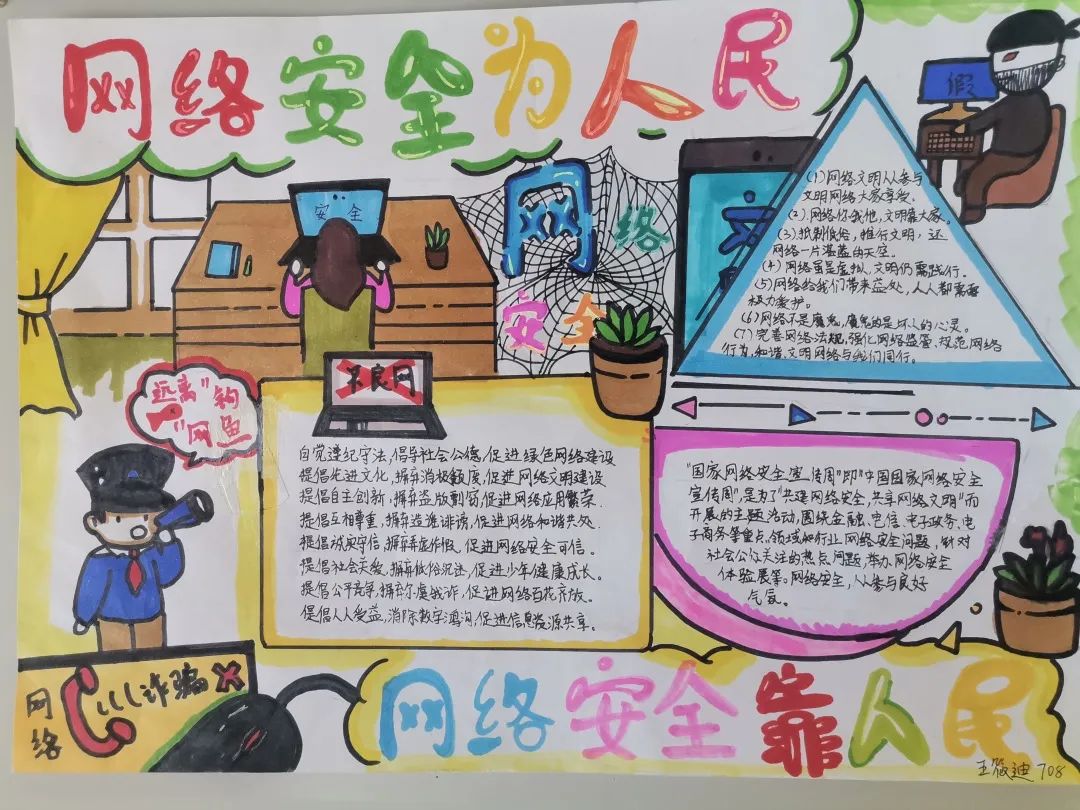 网络安全为人民
假
安全
网络
安全
(1)网络文明人人参与
文明网络大家享受。
(2).网络你我他,文明靠大家。
(3).抵制低俗,推行文明,还
网络一片湛蓝的天空。
(4)网络虽是虚拟,文明仍需践行。
(5)网络给我们带来益处,人人都需要
极力爱护。
(6)网络不是魔鬼,魔鬼的是坏人的心灵。
(7)完善网络法规,强化网络监管,规范网络
行为,和谐文明网络与我们同行。
不良网
远离"钓
"网鱼
自觉遵纪守法,倡导社会公德,促进绿色网络建设
提倡先进文化,摒弃消极颓废,促进网络文明建设
提倡自主创新,摒弃盗版剽窃,促进网络应用繁荣.
提倡互相尊重,摒弃造谣诽谤,促进网络和谐共处.
提倡诚实守信,摒弃弄虚作假,促进网络安全可信。
提倡社会关爱,摒弃低俗沉迷,促进少年健康成长。
提倡公平竞争,摒弃尔虞我诈,促进网络百花齐放。
提倡人人受益,消除数字鸿沟,促进信息资源共享。
"国家网络安全宣传周"即"中国国家网络安全
宣传周",是为了"共建网络安全,共享网络文明"而
开展的主题活动,围绕金融、电信、电子政务、电
子商务等重点领域和行业网络安全问题,针对
社会公众关注的热点问题,举办网络安全
体验展等,网络安全,人人参与良好
气氛。
网络
诈骗
网络安全靠人民
王 迪 708